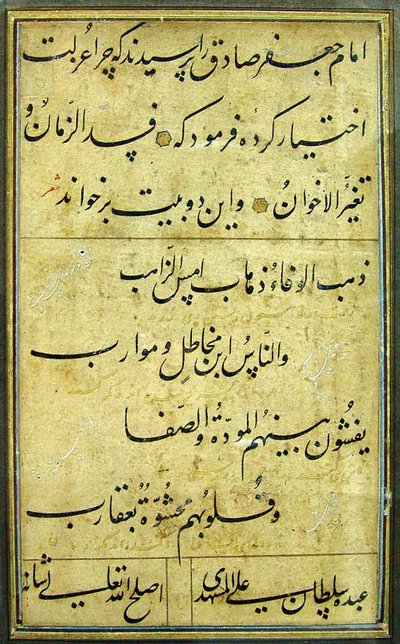 امام جعفر صادق را پرسیدند که چرا عزلت
اختیار کرده فرمود که فسد الزّمانُ و
تغیّر الاخوانُ و این دو بیت برخواند شعر
ذهب الوفاءُ ذهاب امس الذّاهب
والنّاسُ بین مخاطلٍ و موارب
یفشون بینهُم المودّةُ والصّفا
وقُلوبُهم محشوّةٌ بعقارب
عبده سلطان علی المشهدی اصلح الله تعالی شانه